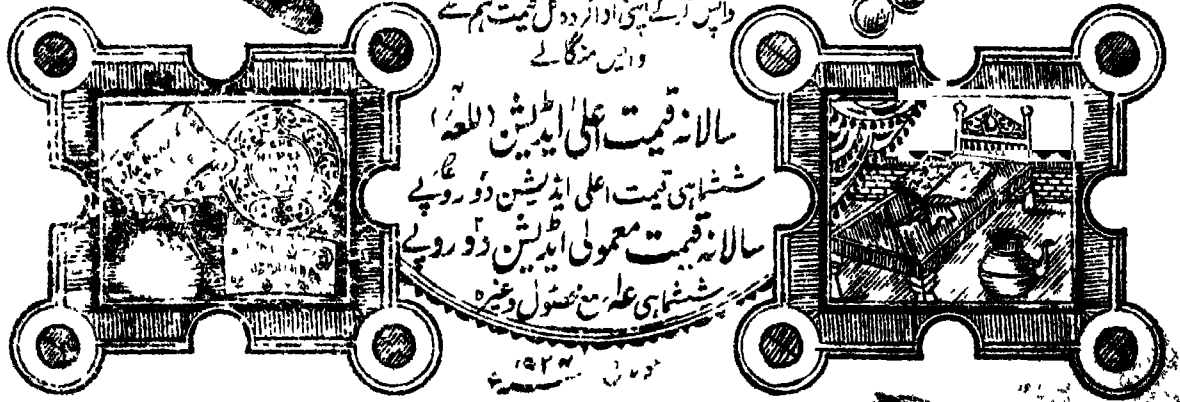 واپس کرکے اپنی ادا کردہ کل قیمت ہم سے
واپس منگالے
سالانہ قیمت اعلیٰ ایڈیشن (للعہ)
ششماہی قیمت اعلی ایڈیشن دو روپے
سالانہ قیمت معمولی ایڈیشن دو روپے
ششماہی عہ مع محصول وغیرہ